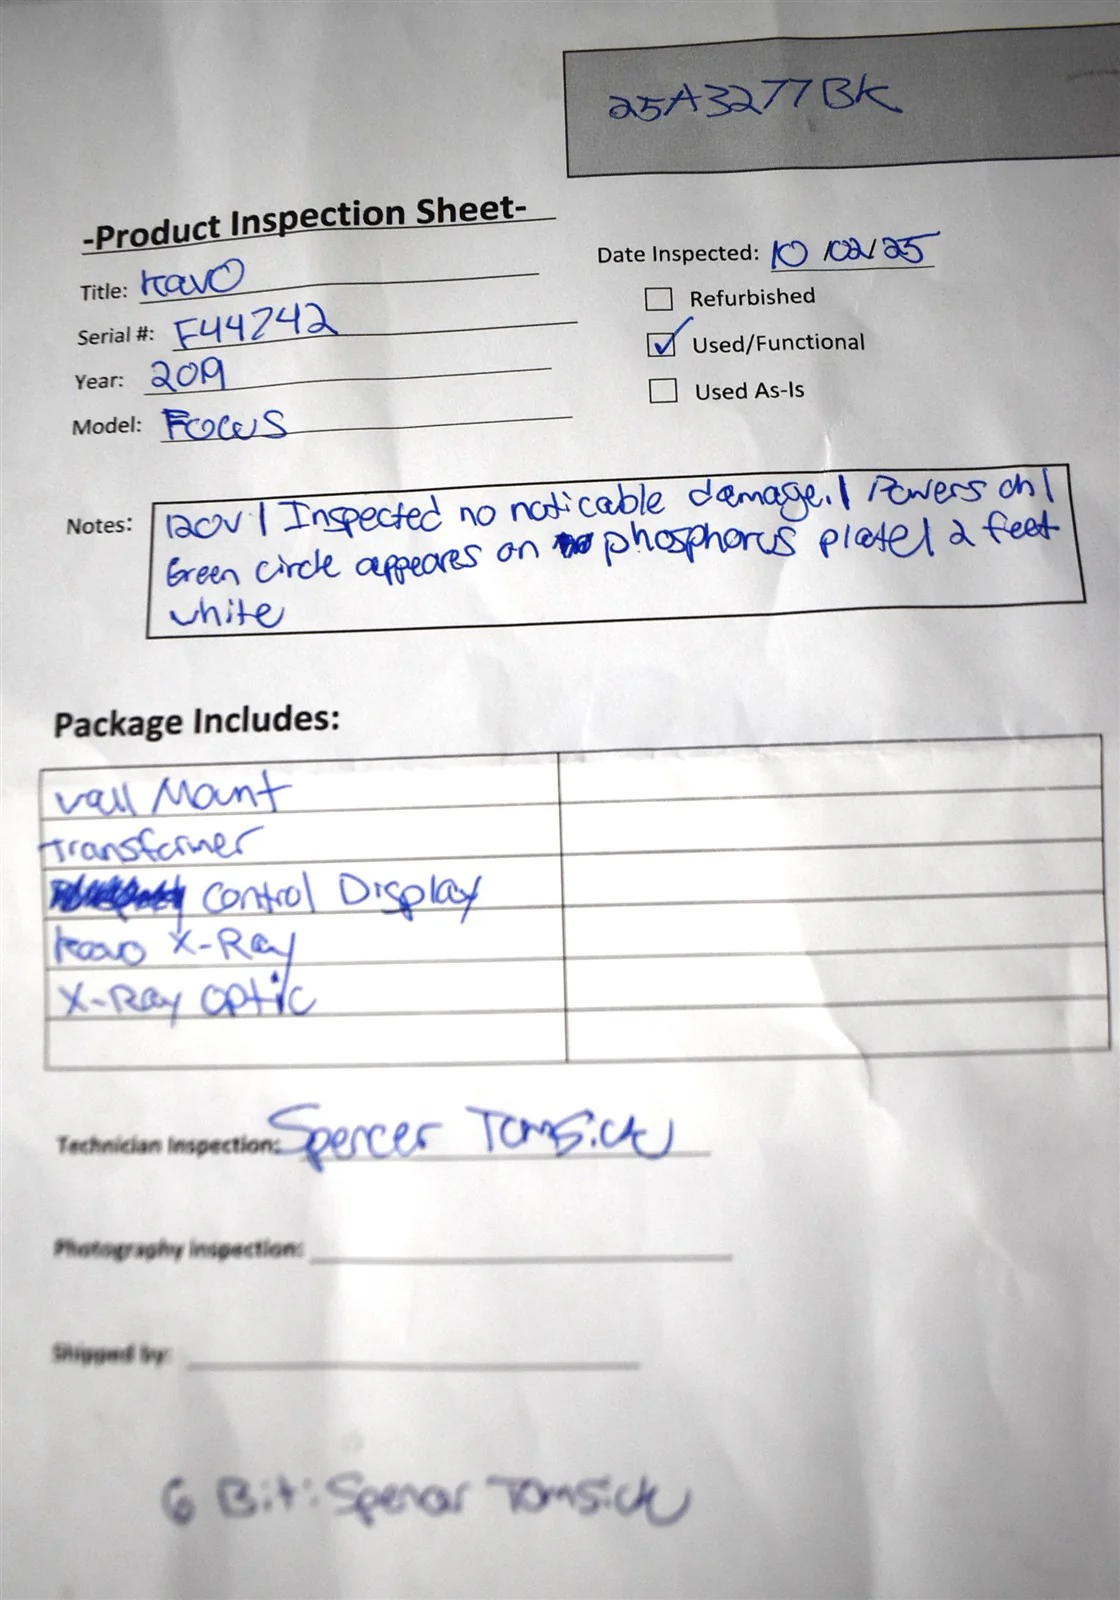 25A3277BK
-Product Inspection Sheet-
Title: KavO
Date Inspected: 10/02/25
Serial #: F44242
Refurbished
Year: 2019
Used/Functional
Model: Focus
Used As-Is
Notes: 120V | Inspected no noticable damage. | Powers on |
Green circle appeares on phosphorus plate | 2 feet
white
Package Includes:
Wall Mount
Transformer
Control Display
Kavo X-Ray
X-Ray Optic
Technician Inspection: Spencer Tomsick
Photography Inspection:
Shipped by:
6 Bit: Spencer Tomsick